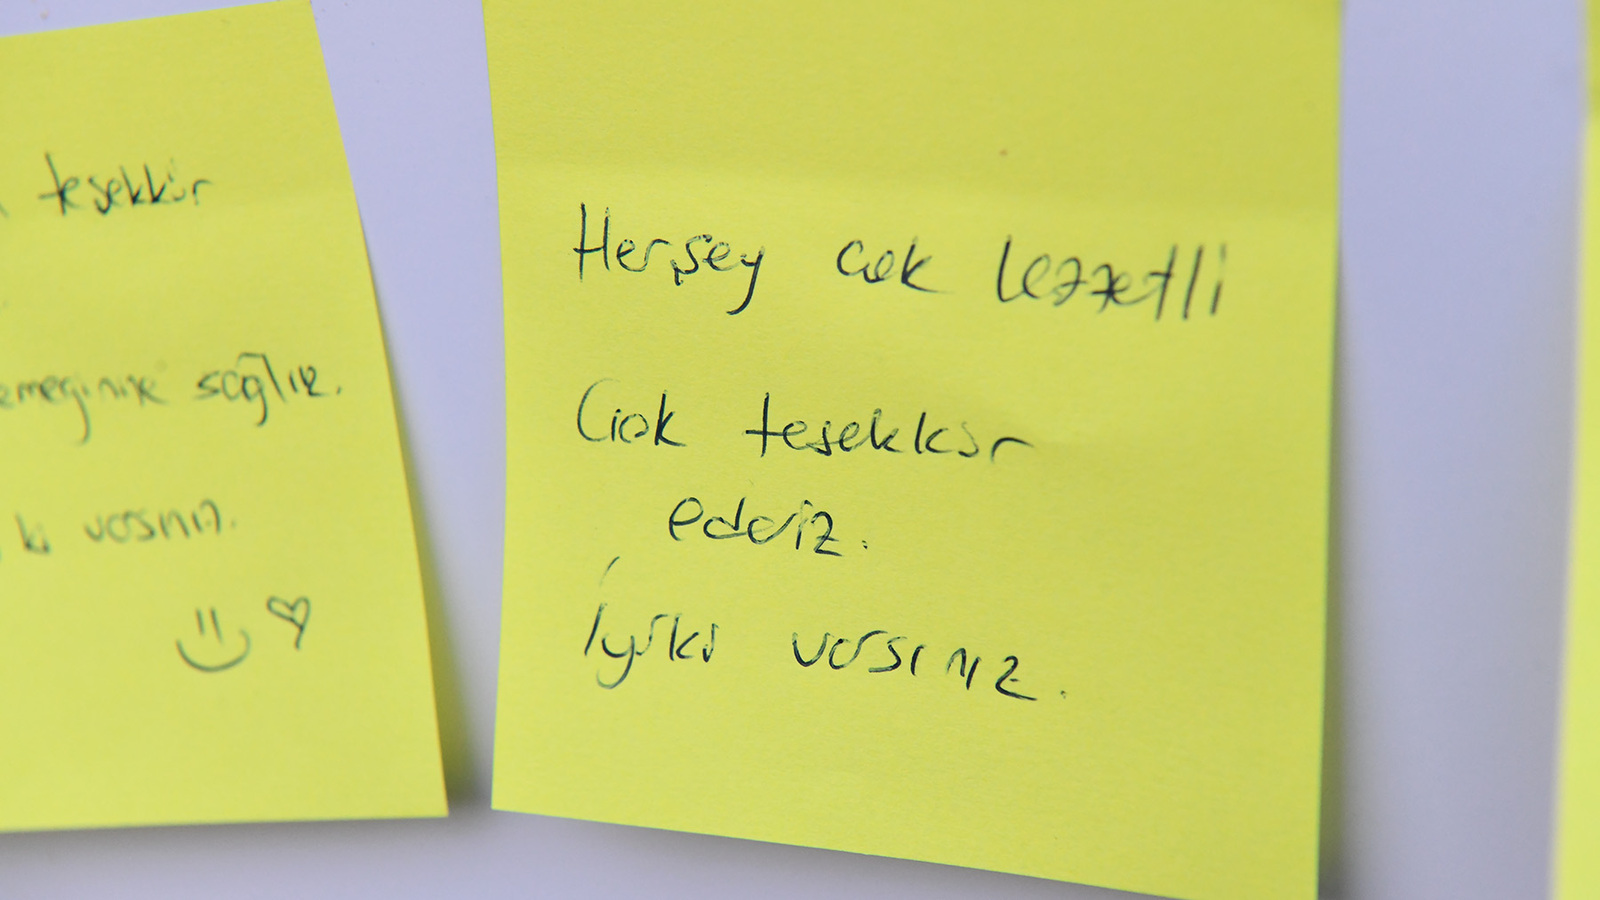 teşekkür
emeğinize sağlık.
ki varsınız.
Herşey çok lezzetli
Çok teşekkür
ederiz.
İyiki varsınız.